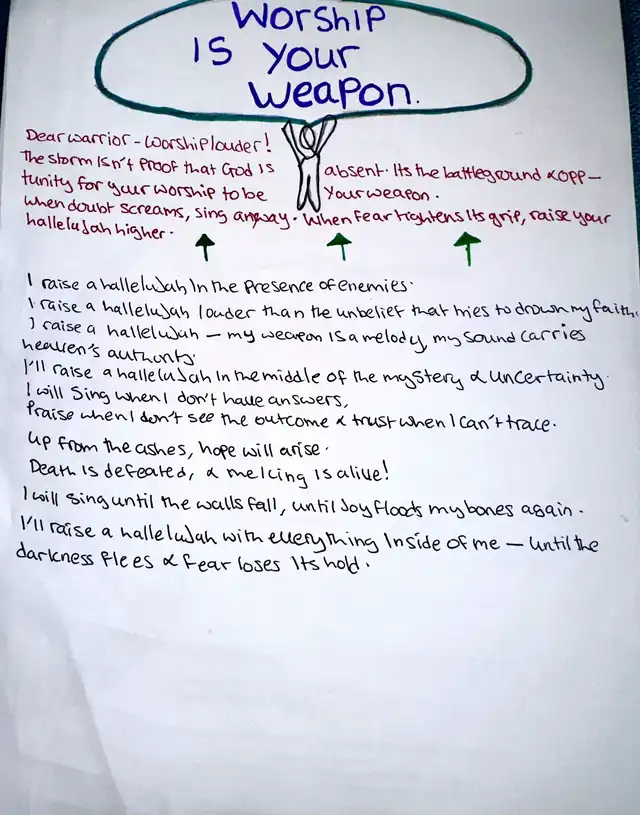 WORSHIP
IS YOUR
WEAPON.
Dear warrior - worship louder!
The storm isn't proof that God is absent. Its the battleground & opp-
tunity for your worship to be your weapon.
when doubt screams, sing anyway. When fear tightens its grip, raise your
hallelujah higher.
I raise a hallelujah in the presence of enemies.
I raise a hallelujah louder than the unbelief that tries to drown my faith.
I raise a hallelujah - my weapon is a melody, my sound carries
heaven's authority.
I'll raise a hallelujah in the middle of the mystery & uncertainty.
I will sing when I don't have answers,
Praise when I don't see the outcome & trust when I can't trace.
Up from the ashes, hope will arise.
Death is defeated, & me king is alive!
I will sing until the walls fall, until joy floods my bones again.
I'll raise a hallelujah with everything inside of me - until the
darkness flees & fear loses its hold.